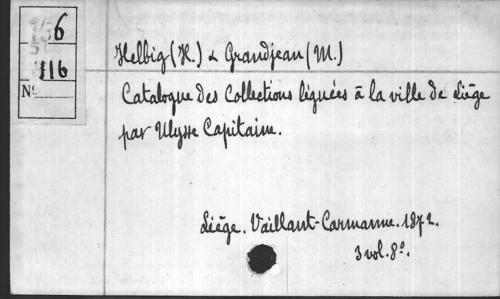 6
116
N°
Helbig (H.) & Grandjean (M.)
Catalogue des Collections léguées à la ville de Liège
par Ulysse Capitaine.
Liège. Vaillant-Carmanne. 1872.
3 vol. 8°.